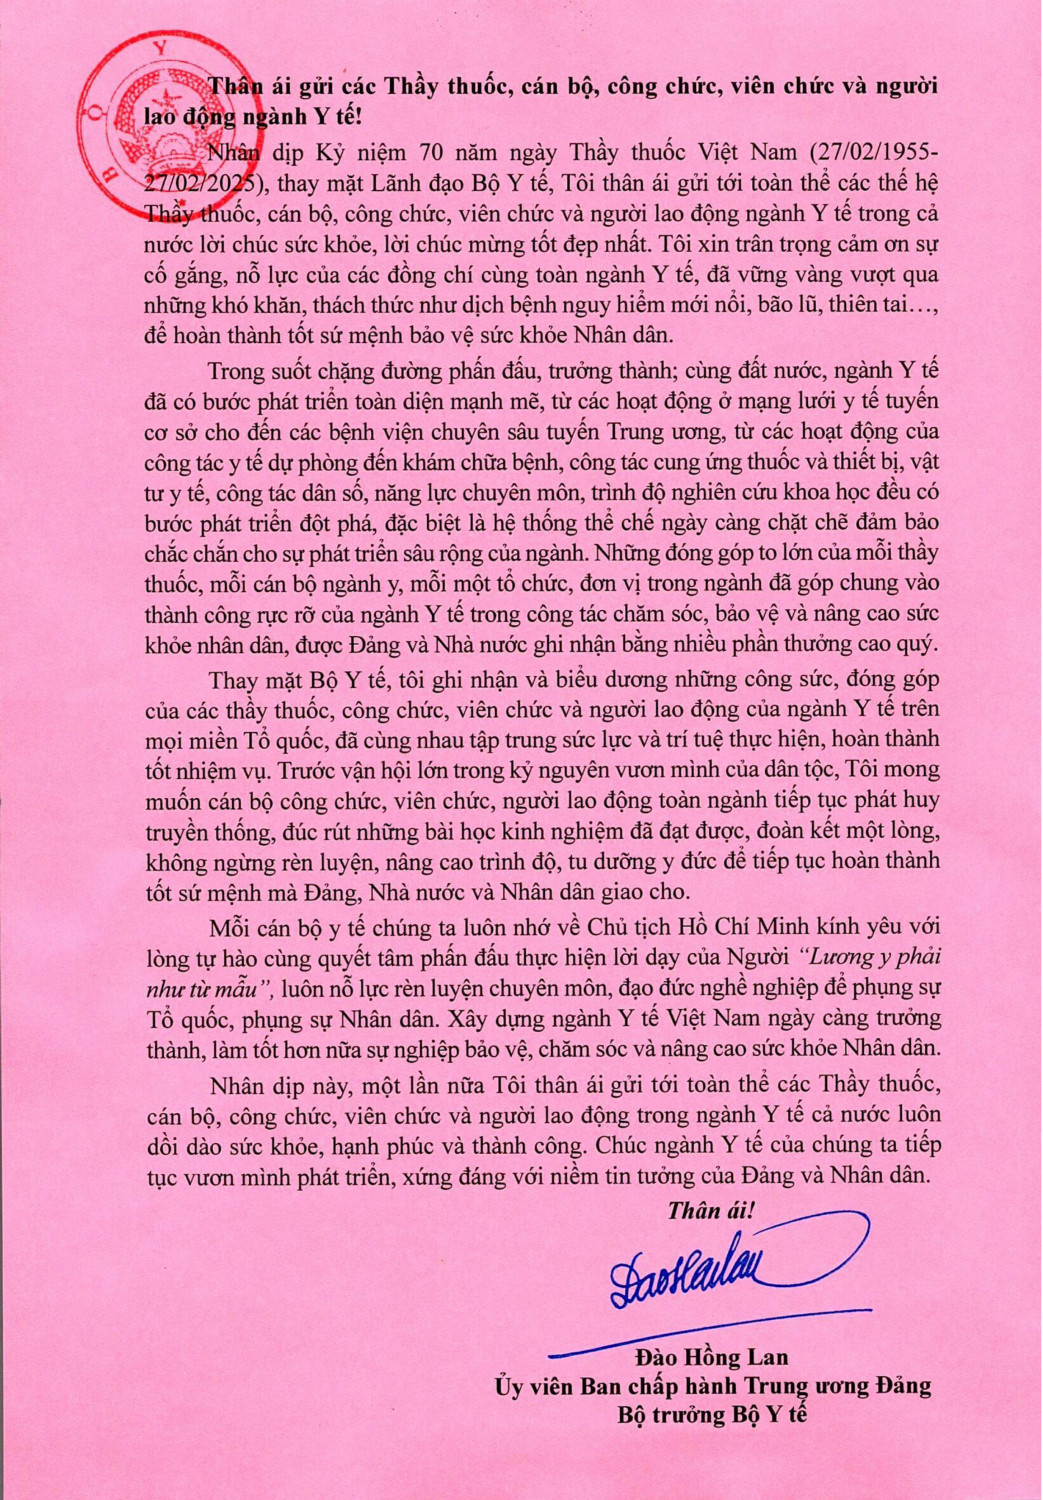 BỘ Y TẾ
Thân ái gửi các Thầy thuốc, cán bộ, công chức, viên chức và người
lao động ngành Y tế!
Nhân dịp Kỷ niệm 70 năm ngày Thầy thuốc Việt Nam (27/02/1955-
27/02/2025), thay mặt Lãnh đạo Bộ Y tế, Tôi thân ái gửi tới toàn thể các thế hệ
Thầy thuốc, cán bộ, công chức, viên chức và người lao động ngành Y tế trong cả
nước lời chúc sức khỏe, lời chúc mừng tốt đẹp nhất. Tôi xin trân trọng cảm ơn sự
cố gắng, nỗ lực của các đồng chí cùng toàn ngành Y tế, đã vững vàng vượt qua
những khó khăn, thách thức như dịch bệnh nguy hiểm mới nổi, bão lũ, thiên tai…,
để hoàn thành tốt sứ mệnh bảo vệ sức khỏe Nhân dân.
Trong suốt chặng đường phấn đấu, trưởng thành; cùng đất nước, ngành Y tế
đã có bước phát triển toàn diện mạnh mẽ, từ các hoạt động ở mạng lưới y tế tuyến
cơ sở cho đến các bệnh viện chuyên sâu tuyến Trung ương, từ các hoạt động của
công tác y tế dự phòng đến khám chữa bệnh, công tác cung ứng thuốc và thiết bị, vật
tư y tế, công tác dân số, năng lực chuyên môn, trình độ nghiên cứu khoa học đều có
bước phát triển đột phá, đặc biệt là hệ thống thể chế ngày càng chặt chẽ đảm bảo
chắc chắn cho sự phát triển sâu rộng của ngành. Những đóng góp to lớn của mỗi thầy
thuốc, mỗi cán bộ ngành y, mỗi một tổ chức, đơn vị trong ngành đã góp chung vào
thành công rực rỡ của ngành Y tế trong công tác chăm sóc, bảo vệ và nâng cao sức
khỏe nhân dân, được Đảng và Nhà nước ghi nhận bằng nhiều phần thưởng cao quý.
Thay mặt Bộ Y tế, tôi ghi nhận và biểu dương những công sức, đóng góp
của các thầy thuốc, công chức, viên chức và người lao động của ngành Y tế trên
mọi miền Tổ quốc, đã cùng nhau tập trung sức lực và trí tuệ thực hiện, hoàn thành
tốt nhiệm vụ. Trước vận hội lớn trong kỷ nguyên vươn mình của dân tộc, Tôi mong
muốn cán bộ công chức, viên chức, người lao động toàn ngành tiếp tục phát huy
truyền thống, đúc rút những bài học kinh nghiệm đã đạt được, đoàn kết một lòng,
không ngừng rèn luyện, nâng cao trình độ, tu dưỡng y đức để tiếp tục hoàn thành
tốt sứ mệnh mà Đảng, Nhà nước và Nhân dân giao cho.
Mỗi cán bộ y tế chúng ta luôn nhớ về Chủ tịch Hồ Chí Minh kính yêu với
lòng tự hào cùng quyết tâm phấn đấu thực hiện lời dạy của Người “Lương y phải
như từ mẫu”, luôn nỗ lực rèn luyện chuyên môn, đạo đức nghề nghiệp để phụng sự
Tổ quốc, phụng sự Nhân dân. Xây dựng ngành Y tế Việt Nam ngày càng trưởng
thành, làm tốt hơn nữa sự nghiệp bảo vệ, chăm sóc và nâng cao sức khỏe Nhân dân.
Nhân dịp này, một lần nữa Tôi thân ái gửi tới toàn thể các Thầy thuốc,
cán bộ, công chức, viên chức và người lao động trong ngành Y tế cả nước luôn
dồi dào sức khỏe, hạnh phúc và thành công. Chúc ngành Y tế của chúng ta tiếp
tục vươn mình phát triển, xứng đáng với niềm tin tưởng của Đảng và Nhân dân.
Thân ái!
DaoHailan
Đào Hồng Lan
Ủy viên Ban chấp hành Trung ương Đảng
Bộ trưởng Bộ Y tế